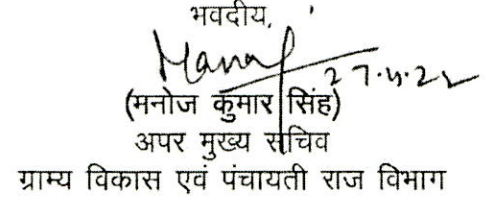 भवदीय,
Manoj
27.4.22
(मनोज कुमार सिंह)
अपर मुख्य सचिव
ग्राम्य विकास एवं पंचायती राज विभाग